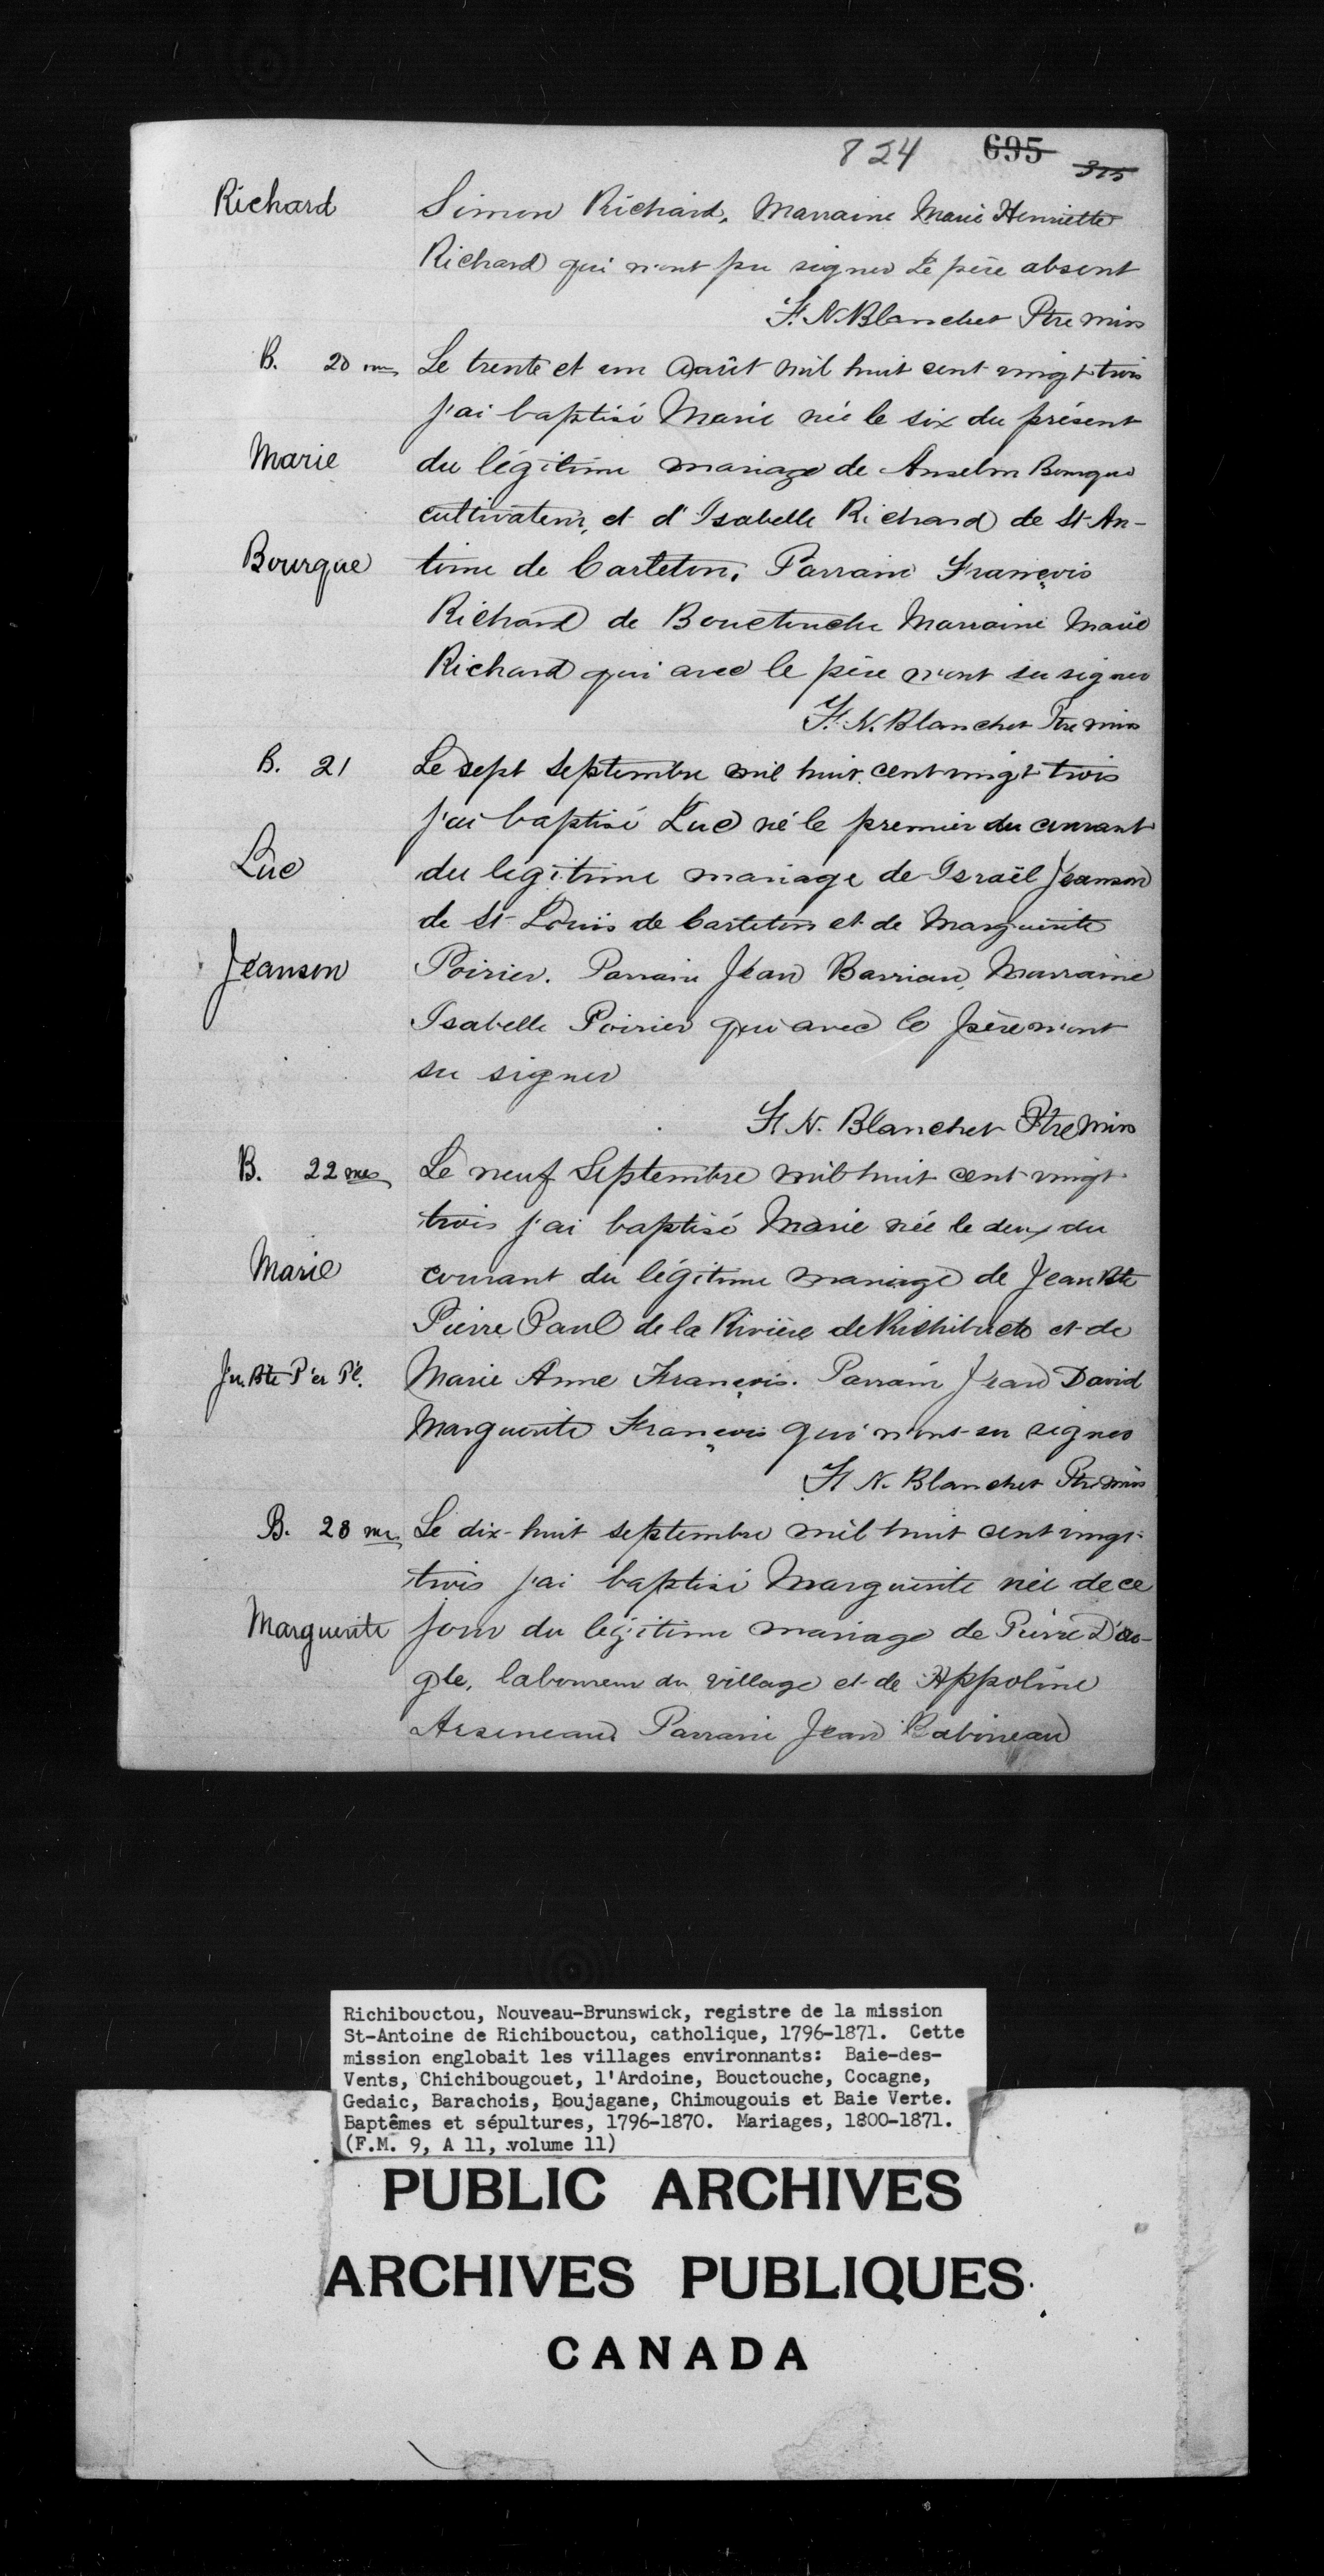 824 695 315
Richard
Simon Richard, Marraine Marie Henriette
Richard qui n'ont pu signer Le père absent
F. N. Blanchet Ptre Miss
B. 20 me Le trente et un Août mil huit cent vingt trois
j'ai baptisé Marie née le six du présent
Marie du légitime mariage de Anselm Bourque
cultivateur, et d'Isabelle Richard de St An-
Bourque toine de Carleton. Parrain François
Richard de Bouctouche Marraine Marie
Richard qui avec le père n'ont su signer
F. N. Blanchet Ptre Miss
B. 21 Le sept Septembre mil huit cent vingt trois
j'ai baptisé Luc né le premier du courant
Luc du légitime mariage de Israël Jeanson
de St Louis de Carleton et de Marguerite
Jeanson Poirier. Parrain Jean Barriau, Marraine
Isabelle Poirier qui avec le père n'ont
su signer
F. N. Blanchet Ptre Miss
B. 22 me Le neuf Septembre mil huit cent vingt
trois j'ai baptisé Marie née le deux du
Marie courant du légitime mariage de Jean Bte
Pierre Paul de la Rivière de Richibucto et de
Jn Bte P'er P'l. Marie Anne François. Parrain Jean David
Marguerite François qui n'ont su signer
F. N. Blanchet Ptre Miss
B. 23 me Le dix-huit septembre mil huit cent vingt
trois j'ai baptisé Marguerite née de ce
Marguerite jour du légitime mariage de Pierre D'ai-
gle, laboureur du village et de Appoline
Arseneaud Parrain Jean Babineau
Richibouctou, Nouveau-Brunswick, registre de la mission
St-Antoine de Richibouctou, catholique, 1796-1871. Cette
mission englobait les villages environnants: Baie-des-
Vents, Chichibougouet, l'Ardoine, Bouctouche, Cocagne,
Gedaic, Barachois, Boujagane, Chimougouis et Baie Verte.
Baptêmes et sépultures, 1796-1870. Mariages, 1800-1871.
(F.M. 9, A 11, volume 11)
PUBLIC ARCHIVES
ARCHIVES PUBLIQUES
CANADA